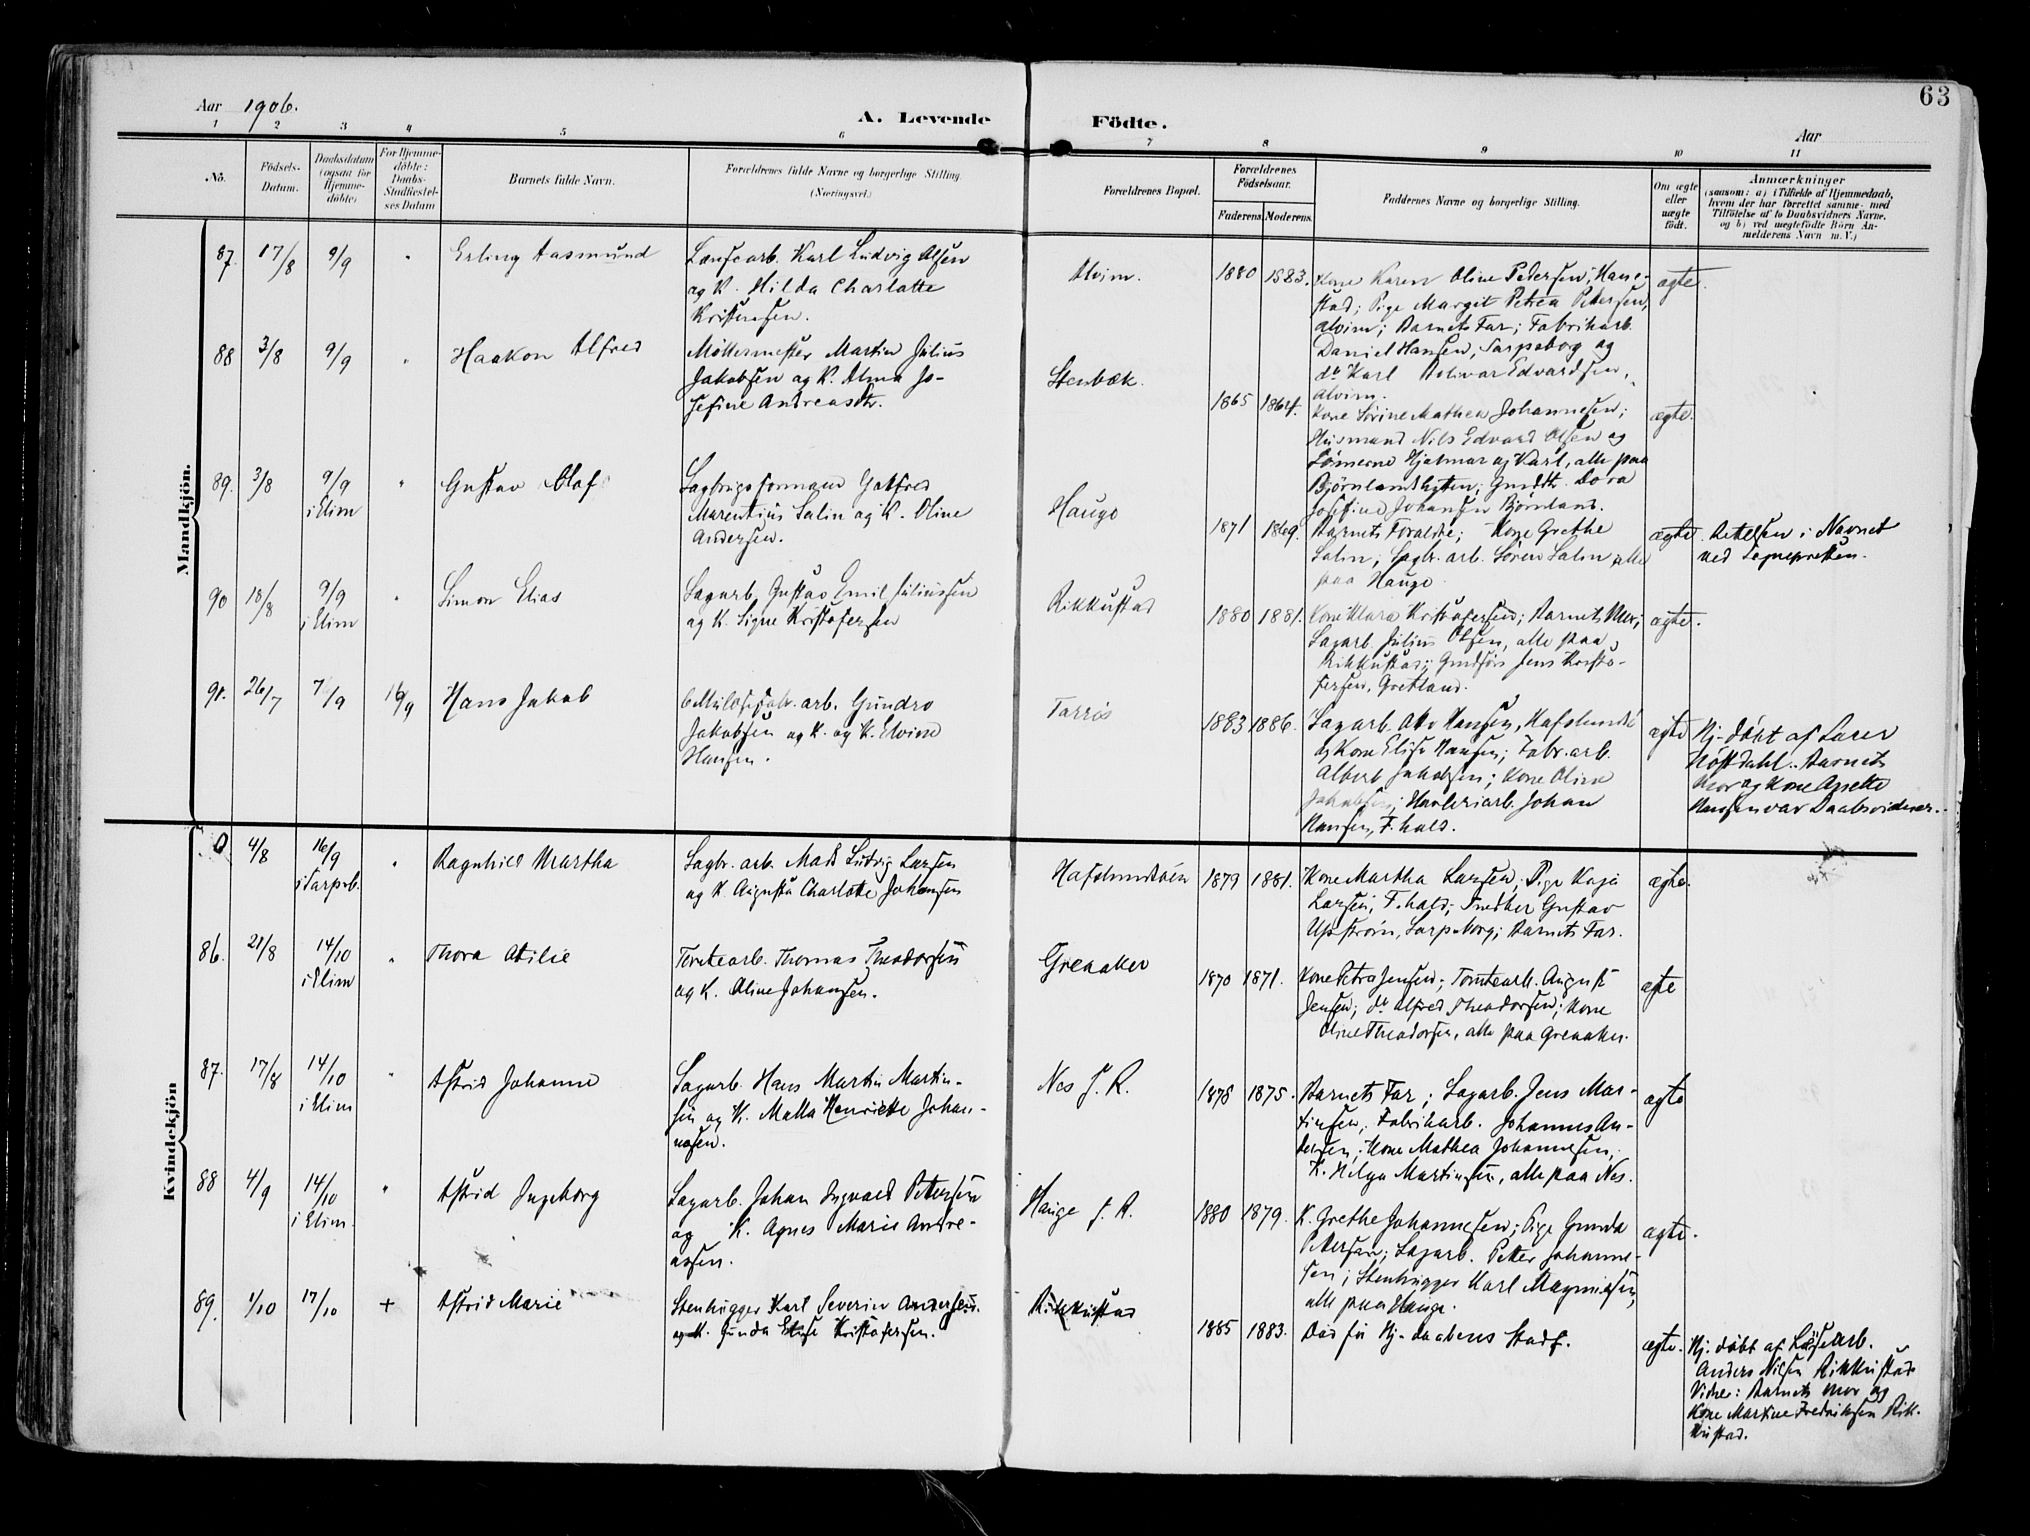 63
Aar 1906.
A. Levende Födte.
Aar
1 2 3 4 5 6 7 8 9 10 11
No.
Födsels-
Datum.
Daabsdatum
(ogsaa for
Hjemme-
döbte)
For Hjemme-
döbte:
Daabs-
Stadfestel-
ses Datum
Barnets fulde Navn.
Forældrenes fulde Navne og borgerlige Stilling.
(Næringsvei.)
Forældrenes Bopæl.
Forældrenes
Födselsaar.
Faderens. Moderens.
Faddernes Navne og borgerlige Stilling.
Om ægte
eller
uægte
födt.
Anmærkninger
(saasom: a) i Tilfælde af Hjemmedaab,
hvem der har forrettet samme med
Tilföielse af to Daabsvidners Navne.
og b) ved uægtefödte Börn An-
melderens Navn m. V.)
Mandkjön.
87. 17/8 9/9 " Erling Aasmund
Karl Ludvig Olsen
og K. Hilda Charlotte
Kristensen.
Alvim. 1880 1883.
Kone Karen Oline Pedersen, Hanne-
stad; Pige Margit Petrea Petersen,
Alvim; Barnets Far; Fabrikarb.
Daniel Hansen, Sarpsborg og
do Karl Bolivar Edvardsen,
Alvim.
ægte.
88 3/8 9/9 " Haakon Alfred
Møllermester Martin Julius
Jakobsen og K. Alma Jo-
sefine Andreasdtr.
Stenbæk. 1865 1864.
Kone Sørine Mathea Johannesen;
Husmand Nils Edvard Olsen og
Sönnerne Hjalmar og Karl, alle paa
Björnlandhyten; Gmdtr. Dora
Josefine Johansen Björnland.
ægte.
89. 3/8 9/9 i Elim " Gustav Olaf
Sagbrugsformand Gotfred
Marentius Salin og K. Oline
Andersen.
Hauge 1871 1869.
Barnets Forældre; Kone Grethe
Salin; Sagbr. arb. Sören Salin alle
paa Hauge.
ægte.
Rettelsen i Navnet
ved Sognepresten.
90 18/8 9/9 i Elim " Simon Elias
Sagarb. Gustav Emil Juliussen
og K. Signe Kristofersen
Rikkustad 1880 1881.
Kone Klara Kristofersen; Barnets Mor;
Sagarb. Julius Olsen, alle paa
Rikkustad; Gmdsön Jens Kristo-
fersen, Gretland.
ægte.
91. 26/7 /9 16/9 Hans Jakob
arb. Gundro
Jakobsen og K. og K. Elvine
Hansen.
Torris 1883 1886.
Sagarb. Otto Hansen, Hafslundsö
og Kone Elise Hansen; Fabr. arb.
Albert Jakobsen; Kone Oline
Jakobsen; Havleriarb. Johan
Hansen, F.hald.
ægte
Hj-döbt af Lærer
Höstdahl. Barnets
Mor og Kone Anette
Hansen var Daabsvidner.
Kvindekjön
4/8 16/9 i Sarpsb. " Ragnhild Martha
Sagbr. arb. Mads Ludvig Larsen
og K. Augusta Charlotte Johansen
Hafslundsöen 1879 1881.
Kone Martha Larsen; Pige Kaja
Larsen, F.hald; Snedker Gustav
Upström, Sarpsborg; Barnets Far.
ægte.
86. 21/8 14/10 i Elim " Thora Otilie
Tomtearb. Thomas Theodorsen
og K. Oline Johansen.
Greaaker 1870 1871.
Kone Petra Jensen; Tomtearb. August
Jensen; do Alfred Theodorsen; Kone
Oline Theodorsen, alle paa Greaaker.
ægte
87. 17/8 14/10 i Elim " Astrid Johanne
Sagarb. Hans Martin Martin-
sen og K. Malla Henriette Johan-
nesen.
Nes f. R. 1878 1875.
Barnets Far; Sagarb. Jens Mar-
tinsen; Fabrikarb. Johannes An-
dersen; Kone Mathea Johannesen,
K. Helga Martinsen, alle paa Nes.
ægte
88 4/9 14/10 i Elim. " Astrid Ingeborg
Sagarb. Johan Ingvald Petersen
og K. Agnes Marie Andre-
assen.
Hauge f. R. 1880 1879.
K. Grethe Johannesen; Pige Gunda
Petersen; Sagarb. Petter Johanne-
sen; Stenhugger Karl Magnussen,
alle paa Hauge.
ægte.
89. 1/10 17/10 + Astrid Marie
Stenhugger Karl Severin Andersen.
og K. Gunda Elise Kristofersen.
Rikkustad 1885 1883.
Död för Hj-daabens Stadf.
ægte.
Hj. döbt af Lössearb.
Anders Nilsen Rikkustad
Vidner: Barnets Mor og
Kone Martine Fredriksen Rik-
kustad.